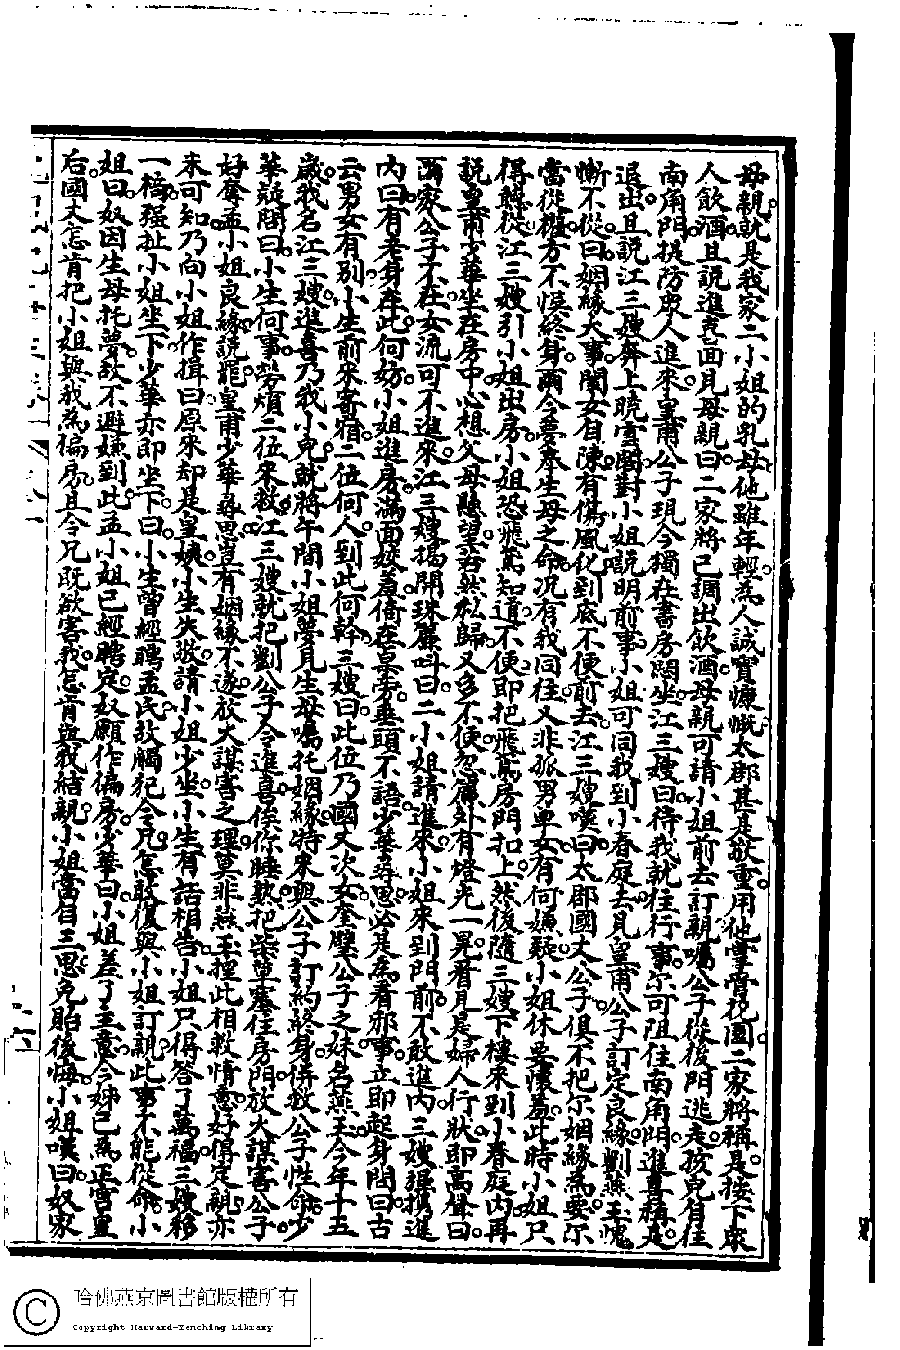 母親就是我家二小姐的乳母他雖年輕為人誠實慷慨太郡甚是敬重用他掌管花園二家將稱是按下眾
人飲酒且說進喜面見母親曰二家將已調出飲酒母親可請小姐前去訂親囑公子從後門逃走孩兒自往
南角門提防眾人進來皇甫公子現今獨在書房悶坐江三嫂曰待我就往行事尔可阻住南角門進喜稱是
退出且說江三嫂奔上曉雲閣對小姐說明前事小姐可同我到小春庭去見皇甫公子訂定良緣劉燕玉愧
慚不從曰姻緣大事閨女自陳有傷風化到底不便前去江三嫂嘆曰太郡國丈公子俱不把尔姻緣為要尔
當從權方不悞終身爾今夢奉生母之命况有我同往又非孤男單女有何嫌疑小姐休要懷羞此時小姐只
得聽從江三嫂引小姐出房小姐恐飛鳶知道不便即把飛鳶房門扣上然後隨三嫂下樓來到小春庭內再
說皇甫少華坐在房中心想父母懸望若然私歸又多不便忽簾外有燈光一晃看見是婦人行狀即高聲曰
爾家公子不在女流可不進來江三嫂揭開珠簾叫曰二小姐請進來小姐來到門前不敢進內三嫂强携進
內曰有老身在此何妨小姐進房滿面姣羞倚在棹旁垂頭不語少華尋思必是為看邪事立即起身問曰古
云男女有別小生前來寄宿二位何人到此何幹三嫂曰此位乃國丈次女奎璧公子之妹名燕玉今年十五
歲我名江三嫂進喜乃我小兒就將午間小姐夢見生母囑托姻緣特來與公子訂約終身併救公子性命少
華疑問曰小生何事勞煩二位來救江三嫂就把劉公子令進喜俟你睡熟把柴草塞住房門放火謀害公子
好奪孟小姐良緣說罷皇甫少華尋思豈有姻緣不遂放火謀害之理莫非燕玉捏此相救情意好得定親亦
未可知乃向小姐作揖曰原來却是皇姨小生失敬請小姐少坐小生有話相告小姐只得答了萬福三嫂移
一椅强扯小姐坐下少華亦即坐下曰小生曾經聘孟氏致觸犯令兄怎敢復與小姐訂親此事不能從命小
姐曰奴因生母托夢故不避嫌到此孟小姐已經聘定奴願作偏房少華曰小姐差了主意令姊已為正宮皇
后國丈怎肯把小姐與我為偏房且令兄既欲害我怎肯與我結親小姐當自三思免貽後悔小姐嘆曰奴家
哈佛燕京圖書館版權所有
Copyright Harvard-Yenching Library